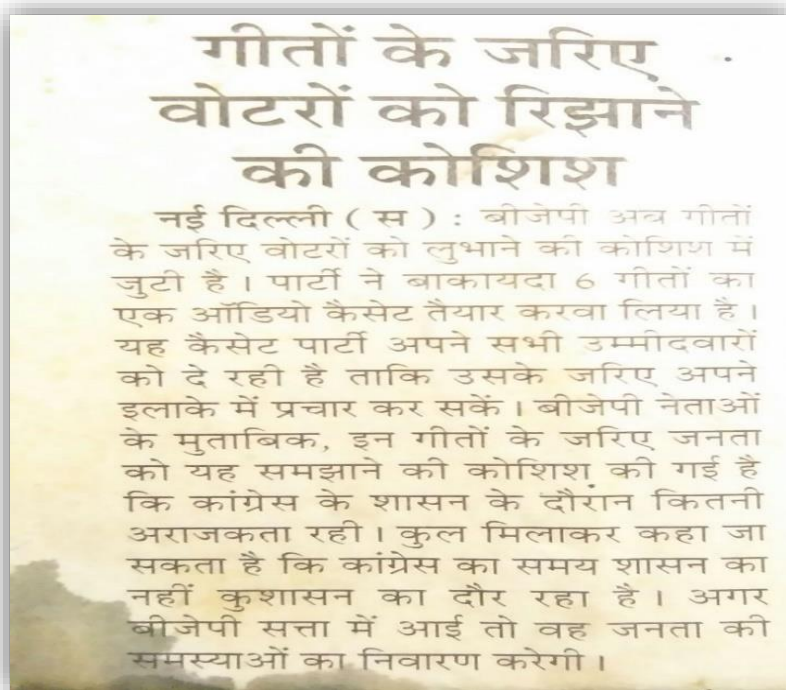 गीतों के जरिए
वोटरों को रिझाने
की कोशिश
नई दिल्ली ( स ) : बीजेपी अब गीतों
के जरिए वोटरों को लुभाने की कोशिश में
जुटी है । पार्टी ने बाकायदा 6 गीतों का
एक ऑडियो कैसेट तैयार करवा लिया है ।
यह कैसेट पार्टी अपने सभी उम्मीदवारों
को दे रही है ताकि उसके जरिए अपने
इलाके में प्रचार कर सकें । बीजेपी नेताओं
के मुताबिक, इन गीतों के जरिए जनता
को यह समझाने की कोशिश की गई है
कि कांग्रेस के शासन के दौरान कितनी
अराजकता रही । कुल मिलाकर कहा जा
सकता है कि कांग्रेस का समय शासन का
नहीं कुशासन का दौर रहा है । अगर
बीजेपी सत्ता में आई तो वह जनता की
समस्याओं का निवारण करेगी ।